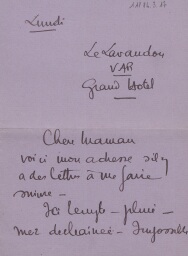 Lundi
Le Lavandou
VAR
Grand Hotel
Chere Maman
voici mon adresse s'il y
a des lettres à me faire
suivre -
Ici temps - pluie -
mer dechainée - Impossible